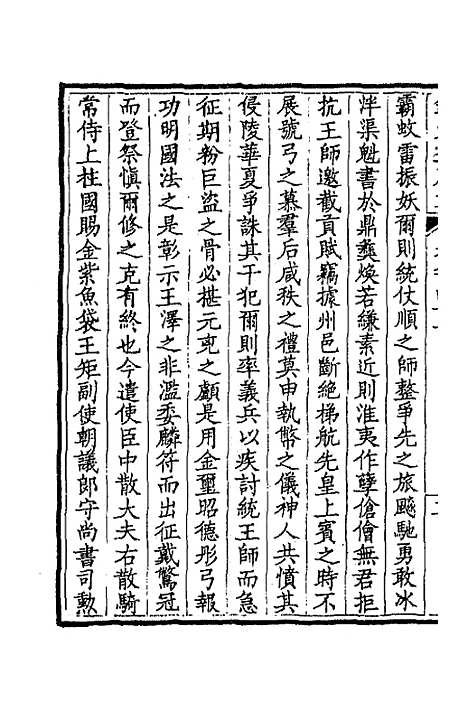 霸蚊雷振妖爾則統仗順之師整爭先之旅飈馳勇敢冰
泮渠魁書於鼎彝煥若縑素近則淮夷作孽傖儈無君拒
抗王師邀截貢賦竊據州邑斷絕梯航先皇上賓之時不
展號弓之慕羣后咸秩之禮莫申執幣之儀神人共憤其
侵陵華夏爭誅其干犯爾則率義兵以疾討統王師而急
征期粉巨盜之骨必揕元兇之顱是用金璽昭德彤弓報
功明國法之是彰示王澤之非濫委麟符而出征戴鷩冠
而登祭愼爾修之克有終也今遣使臣中散大夫右散騎
常侍上柱國賜金紫魚袋王矩副使朝議郎守尚書司勲